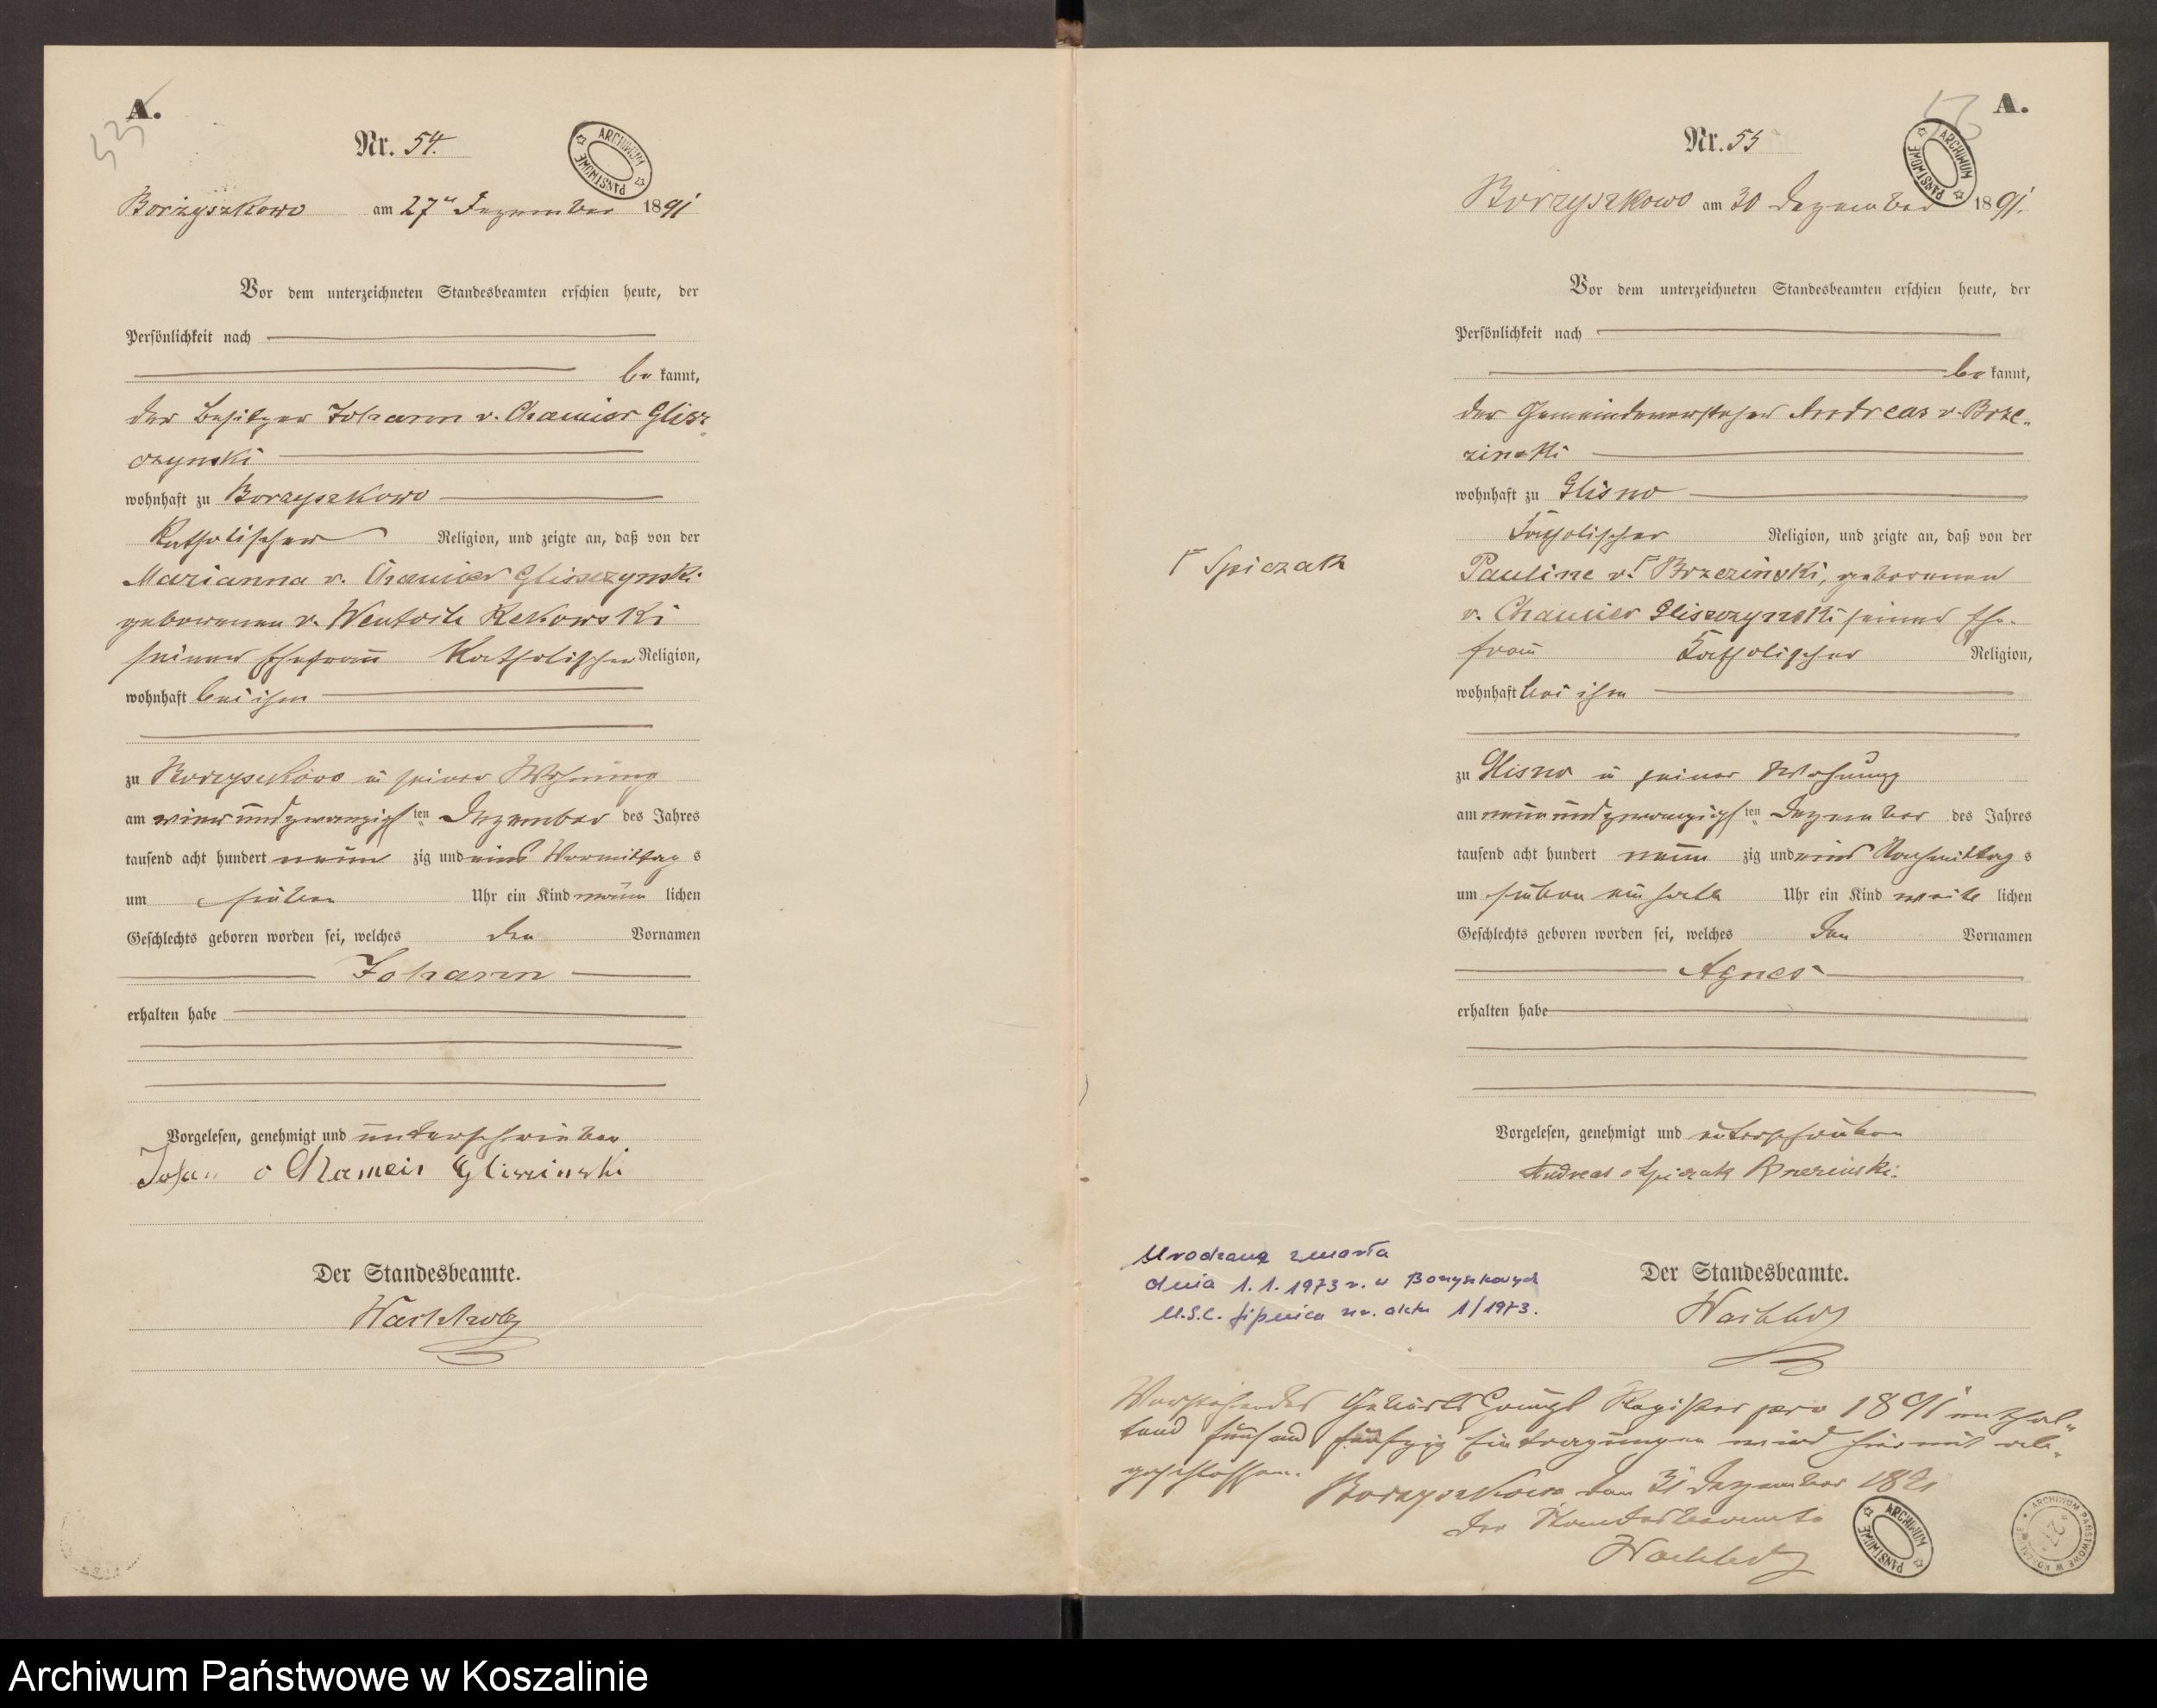 A.
53
Nr. 54.
ARCHIWUM PAŃSTWOWE
Borzyszkowo am 27ten Dezember 1891
Vor dem unterzeichneten Standesbeamten erschien heute, der
Persönlichkeit nach
be kannt,
der Besitzer Johann v. Chamier Glisz-
czynski
wohnhaft zu Borzyszkowo
Katholischer Religion, und zeigte an, daß von der
Marianna v. Chamier Gliszczynski
geborenen v. Wentoch Rekowski
seiner Ehefrau Katholischer Religion,
wohnhaft bei ihm
zu Borzyszkowo in seiner Wohnung
am vierundzwanzigsten Dezember des Jahres
tausend acht hundert neun zig und eins Vormittag s
um sieben Uhr ein Kind männ lichen
Geschlechts geboren worden sei, welches den Vornamen
Johann
erhalten habe
Vorgelesen, genehmigt und unterschrieben
Johan v Chameir Gliszinski
Der Standesbeamte.
Wachholz
A.
Nr. 55
ARCHIWUM PAŃSTWOWE
Borzyszkowo am 30 Dezember 1891.
Vor dem unterzeichneten Standesbeamten erschien heute, der
Persönlichkeit nach
be kannt,
der Gemeindevorsteher Andreas v. Brze-
zinski
wohnhaft zu Glisno
Katholischer Religion, und zeigte an, daß von der
Γ Spiczak
Pauline v. Γ Brzezinski, geborenen
v. Chamier Gliszczynski seiner Ehe-
frau Katholischer Religion,
wohnhaft bei ihm
zu Glisno in seiner Wohnung
am neunundzwanzigsten Dezember des Jahres
tausend acht hundert neun zig und eins Nachmittag s
um sieben ein halb Uhr ein Kind weib lichen
Geschlechts geboren worden sei, welches den Vornamen
Agnes
erhalten habe
Vorgelesen, genehmigt und unterschrieben
Andreas v Spiczak Brzezinski.
Urodzona zmarła
dnia 1.1.1973 r. w Borzyszkowych
U.S.C. Lipnica nr. aktu 1/1973.
Der Standesbeamte.
Wachholz
Vorstehendes Geburts Haupt Register pro 1891 enthal-
tend fünf und fünfzig Eintragungen wird hiermit ab-
geschlossen.
Borzyszkowo den 31 Dezember 1891
Der Standesbeamte
Wachholz
ARCHIWUM PAŃSTWOWE
ARCHIWUM PAŃSTWOWE W KOSZALINIE
Archiwum Państwowe w Koszalinie